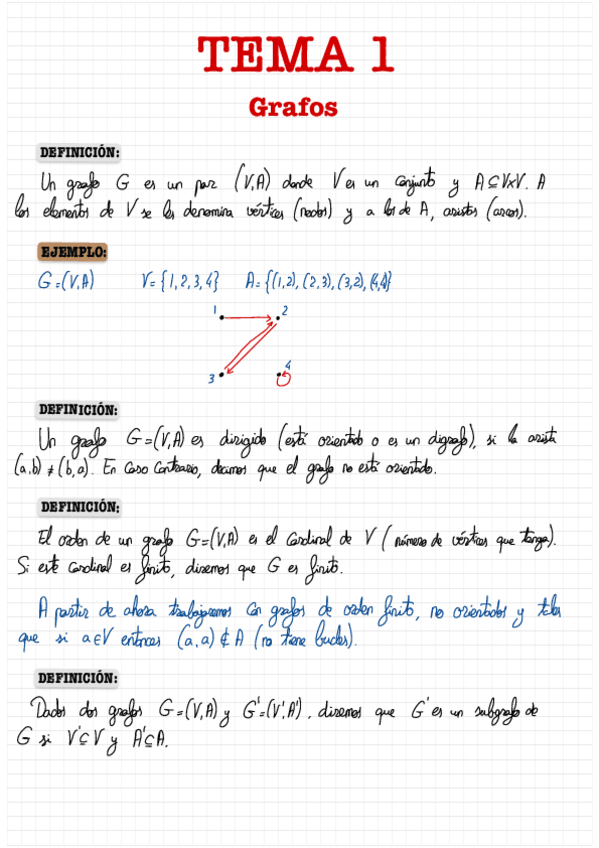 TEMA 1
Grafos
DEFINICIÓN:
Un grafo G es un par (V,A) donde V es un conjunto y A⊆V×V. A
los elementos de V se les denomina vértices (nodos) y a los de A, aristas (arcos).
EJEMPLO:
G=(V,A) V={1,2,3,4} A={(1,2),(2,3),(3,2),(4,4)}
1 2
3 4
DEFINICIÓN:
Un grafo G=(V,A) es dirigido (está orientado o es un digrafo), si la arista
(a,b)≠(b,a). En caso contrario, decimos que el grafo no está orientado.
DEFINICIÓN:
El orden de un grafo G=(V,A) es el cardinal de V (número de vértices que tenga).
Si este cardinal es finito, diremos que G es finito.
A partir de ahora trabajaremos con grafos de orden finito, no orientados y tales
que si a∈V entonces (a,a)∉A (no tiene bucles).
DEFINICIÓN:
Dados dos grafos G=(V,A) y G'=(V',A'), diremos que G' es un subgrafo de
G si V'⊆V y A'⊆A.